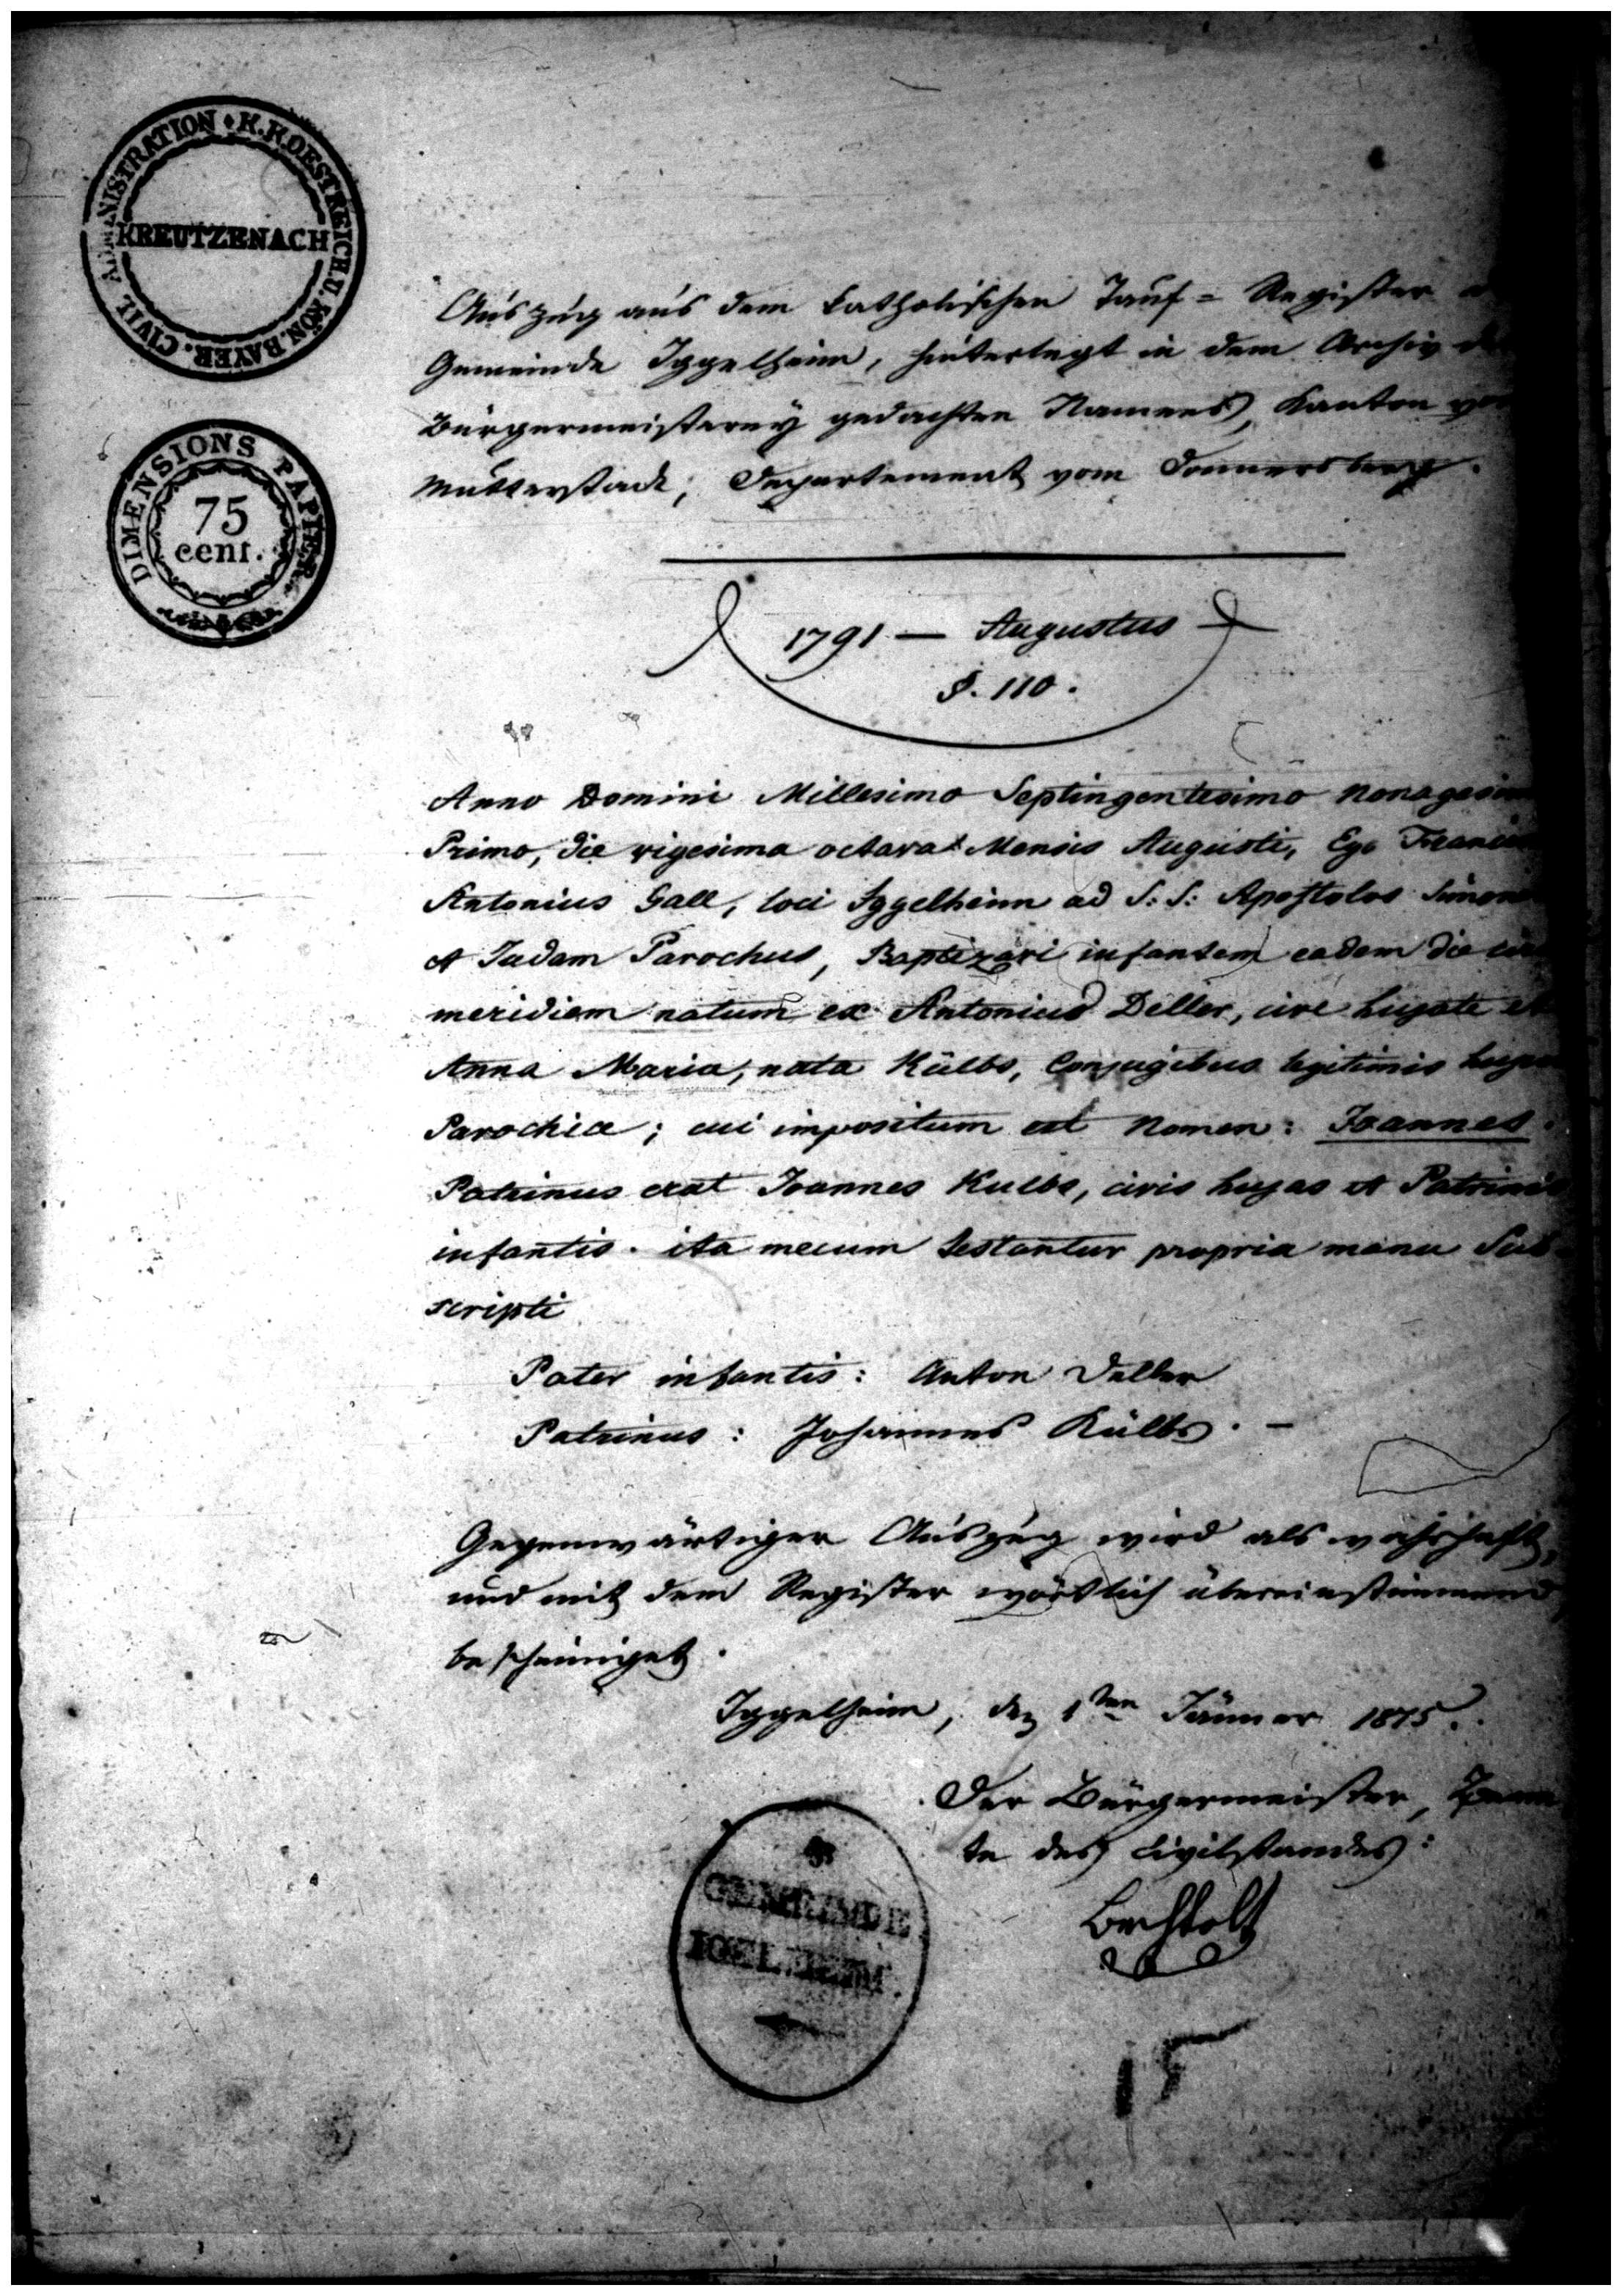 ADMINISTRATION • K.K.OESTREICH.U.KÖN.BAYER. CIVIL
KREUTZENACH
DIMENSIONS PAPIER
75
cent.
Auszug aus dem katholischen Tauf= Register
Gemeinde Iggelheim, hinterlegt in dem Archiv
Bürgermeisterey gedachten Namens, Kanton
Mutterstadt, Departement vom Donnersberg.
1791 — Augustus
§. 110.
Anno Domini Millesimo Septingentesimo Nonagesim
Primo, die vigesima octava Mensis Augusti, Ego Francis
Antonius Gall, loci Iggelheim ad S: S: Apostolos Simon
et Judam Parochus, Baptizavi infantem eadem die
meridiem natum ex Antonius Deller, cive hujate et
Anna Maria, nata Külbs, Conjugibus legitimis huju
Parochiæ; cui impositum est Nomen: Joannes.
Patrinus erat Joannes Kulbs, civis hujas et Patrinus
infantis. ita mecum testantur propria manu Sub=
scripti
Pater infantis: Anton Deller
Patrinus: Johannes Külbs. —
Gegenwärtiger Auszug wird als wahrhaft,
und mit dem Register wörtlich übereinstimmend,
bescheiniget.
Iggelheim, den 1ten Jänner 1815.
Der Bürgermeister, Beam
te des Civilstandes:
Bechtolt
GEMEINDE
IGELHEIM
15